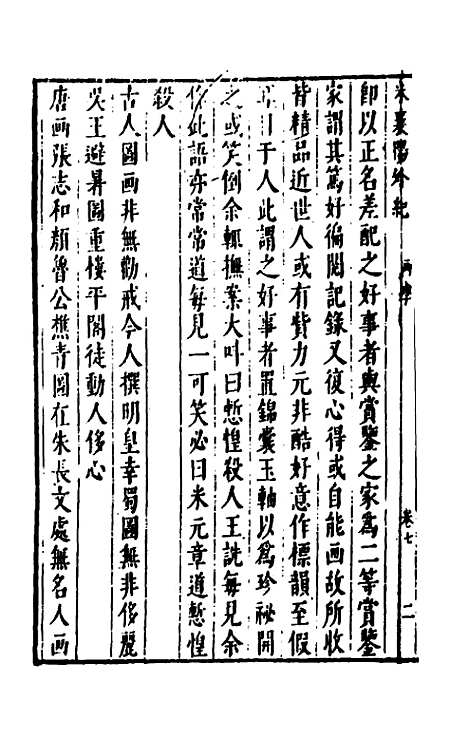 米襄陽外紀 画學 卷七 二
即以正名差配之好事者與賞鑒之家爲二等賞鑒
家謂其篤好徧閱記錄又復心得或自能画故所收
皆精品近世人或有貲力元非酷好意作標韻至假
耳目于人此謂之好事者置錦囊玉軸以爲珍祕開
之或笑倒余輒撫案大叫曰慙惶殺人王詵每見余
作此語亦常常道每見一可笑必曰米元章道慙惶
殺人
古人圖画非無勸戒今人撰明皇幸蜀圖無非侈麗
吳王避暑圖重樓平閣徒動人侈心
唐画張志和顏魯公樵青圖在朱長文處無名人画